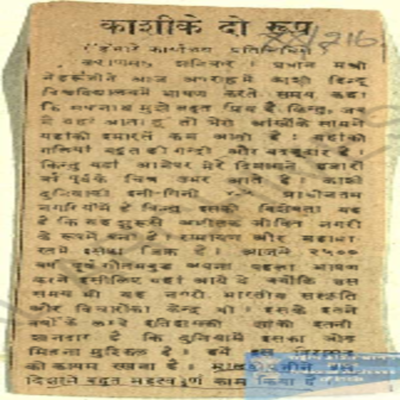 काशीके दो रूप
हमारे कार्यालय प्रतिनिधिसे
वाराणसी, शनिवार । प्रधान मंत्री
नेहरूजीने आज अपराह्नमें काशी हिन्दू
विश्वविद्यालयमें भाषण करते समय कहा
कि मुझे बहुत प्रिय है, किन्तु, जब
मैं यहां आता हूं तो मेरी आंखोंके सामने
यहांकी इमारतें कम आती हैं । यहांकी
गलियां बहुत ही गन्दी और बदबूदार हैं ।
किन्तु यहां आनेपर मेरे दिमागमें हजारों
वर्ष पूर्वके चित्र उभर आते हैं । काशी
दुनियाकी इनी-गिनी प्राचीनतम
नगरियोंमें है किन्तु इसकी विशेषता यह
है कि यह शुरूसे अभीतक जीवित नगरी
के रूपमें बनी है रामायण और महाभा-
रतमें इसका जिक्र है । आजसे २५००
वर्ष पूर्व गौतमबुद्ध अपना पहला भाषण
करने इसीलिए यहां आये थे क्योंकि उस
समय भी यह नगरी भारतीय संस्कृति
और विचारोंका केन्द्र थी । इसके इतने
वर्षों के इतिहासकी झांकी इतनी
शानदार है कि दुनियामें इसका जोड़
मिलना मुश्किल है । हमें इस
को कायम रखना है ।
दिशामें बहुत महत्वपूर्ण काम किया है